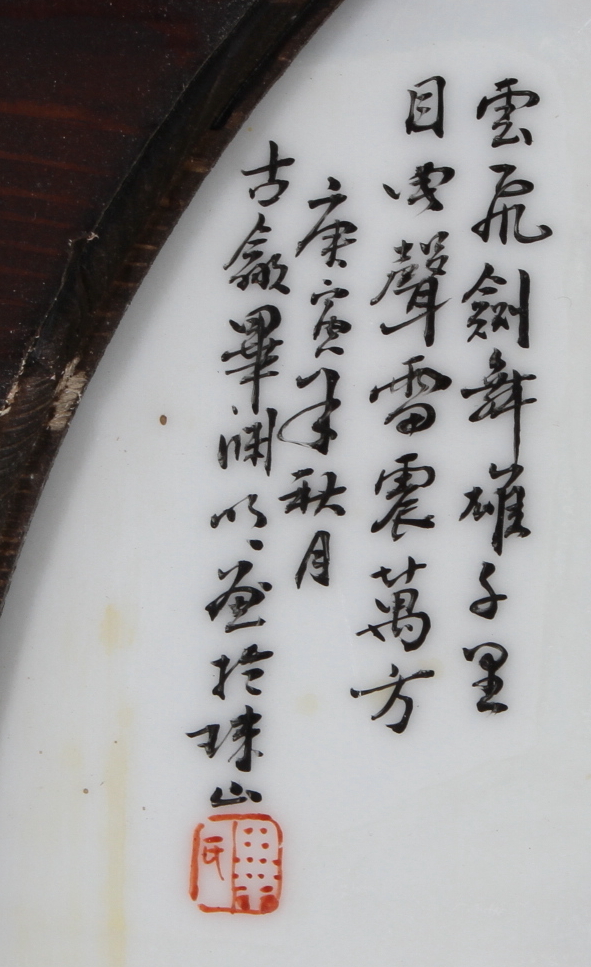 雲飛劍舞雄千里
目聲雷震萬方
庚寅年秋月
古歙畢淵明畫於珠山
氏